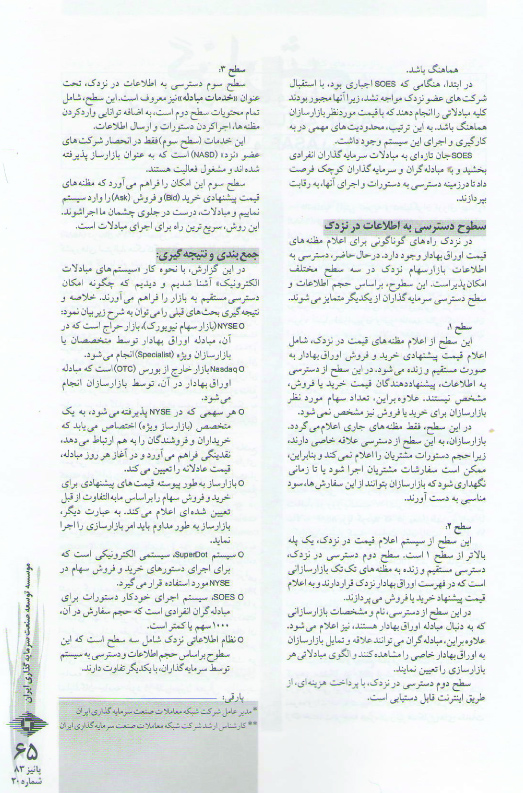 هماهنگ باشد.
در ابتدا، هنگامی که SOES اجباری بود، با استقبال
شرکت های عضو نزدک مواجه نشد، زیرا آنها مجبور بودند
کلیه مبادلاتی را انجام دهند که با قیمت موردنظر بازارسازان
هماهنگ باشد. به این ترتیب، محدودیت های مهمی در به
کارگیری و اجرای این سیستم وجود داشت.
SOES جان تازه ای به مبادلات سرمایه گذاران انفرادی
بخشید و به مبادله گران و سرمایه گذاران کوچک فرصت
داد تا در زمینه دسترسی به دستورات و اجرای آنها، به رقابت
بپردازند.
سطوح دسترسی به اطلاعات در نزدک
در نزدک راه های گوناگونی برای اعلام مظنه های
قیمت اوراق بهادار وجود دارد. در حال حاضر، دسترسی به
اطلاعات بازار سهام نزدک در سه سطح مختلف
امکان پذیر است. این سطوح، براساس حجم اطلاعات و
سطح دسترسی سرمایه گذاران از یکدیگر متمایز می شوند.
سطح ۱:
این سطح از اعلام مظنه های قیمت در نزدک، شامل
اعلام قیمت پیشنهادی خرید و فروش اوراق بهادار به
صورت مستقیم و زنده می شود. در این سطح از دسترسی
به اطلاعات، پیشنهاددهندگان قیمت خرید یا فروش،
مشخص نیستند. علاوه براین، تعداد سهام مورد نظر
بازارسازان برای خرید یا فروش نیز مشخص نمی شود.
در این سطح، فقط مظنه های جاری اعلام می گردد.
بازارسازان، به این سطح از دسترسی علاقه خاصی دارند،
زیرا حجم دستورات مشتریان را اعلام نمی کند و بنابراین،
ممکن است سفارشات مشتریان اجرا شود یا تا زمانی
نگهداری شود که بازارسازان بتوانند از این سفارش ها، سود
مناسبی به دست آورند.
سطح ۲:
این سطح از سیستم اعلام قیمت در نزدک، یک پله
بالاتر از سطح ۱ است. سطح دوم دسترسی در نزدک،
دسترسی مستقیم و زنده به مظنه های تک تک بازارسازانی
است که در فهرست اوراق بهادار نزدک قرار دارند و به اعلام
قیمت پیشنهاد خرید یا فروش می پردازند.
در این سطح از دسترسی، نام و مشخصات بازارسازانی
که به دنبال مبادله اوراق بهادار هستند، نیز اعلام می شود.
علاوه براین، مبادله گران می توانند علاقه و تمایل بازارسازان
به اوراق بهادار خاصی را مشاهده کنند و الگوی مبادلاتی هر
بازارسازی را تعیین نمایند.
سطح دوم دسترسی در نزدک، با پرداخت هزینه ای، از
طریق اینترنت قابل دستیابی است.
سطح ۳:
سطح سوم دسترسی به اطلاعات در نزدک، تحت
عنوان «خدمات مبادله» نیز معروف است. این سطح، شامل
تمام محتویات سطح دوم است، به اضافه توانایی وارد کردن
مظنه ها، اجرا کردن دستورات و ارسال اطلاعات.
این خدمات (سطح سوم) فقط در انحصار شرکت های
عضو «نزد» (NASD) است که به عنوان بازارساز پذیرفته
شده اند و مشغول فعالیت هستند.
سطح سوم این امکان را فراهم می آورد که مظنه های
قیمت پیشنهادی خرید (Bid) و فروش (Ask) را وارد سیستم
نماییم و مبادلات، درست در جلوی چشمان ما اجرا شوند.
این روش، سریع ترین راه برای اجرای مبادلات است.
جمع بندی و نتیجه گیری:
در این گزارش، با نحوه کار «سیستم های مبادلات
الکترونیک» آشنا شدیم و دیدیم که چگونه امکان
دسترسی مستقیم به بازار را فراهم می آورند. خلاصه و
نتیجه گیری بحث های قبلی را می توان به شرح زیر بیان نمود:
○ NYSE (بازار سهام نیویورک)، بازار حراج است که در
آن، مبادله اوراق بهادار توسط متخصصان یا
بازارسازان ویژه (Specialist) انجام می شود.
○ Nasdaq بازار خارج از بورس (OTC) است که مبادله
اوراق بهادار در آن، توسط بازارسازان انجام
می شود.
○ هر سهمی که در NYSE پذیرفته می شود، به یک
متخصص (بازارساز ویژه) اختصاص می یابد که
خریداران و فروشندگان را به هم ارتباط می دهد،
نقدینگی فراهم می آورد و در آغاز هر روز مبادله،
قیمت عادلانه را تعیین می کند.
○ بازارساز به طور پیوسته قیمت های پیشنهادی برای
خرید و فروش سهام را براساس مابه التفاوت از قبل
تعیین شده ای اعلام می کند. به عبارت دیگر،
بازارساز به طور مداوم باید امر بازارسازی را اجرا
نماید.
○ سیستم SuperDot، سیستمی الکترونیکی است که
برای اجرای دستورهای خرید و فروش سهام در
NYSE مورد استفاده قرار می گیرد.
○ SOES، سیستم اجرای خودکار دستورات برای
مبادله گران انفرادی است که حجم سفارش در آن،
۱۰۰۰ سهم یا کمتر است.
○ نظام اطلاعاتی نزدک شامل سه سطح است که این
سطوح براساس حجم اطلاعات و دسترسی به سیستم
توسط سرمایه گذاران، با یکدیگر تفاوت دارند.
پاورقی:
* مدیر عامل شرکت شبکه معاملات صنعت سرمایه گذاری ایران
** کارشناس ارشد شرکت شبکه معاملات صنعت سرمایه گذاری ایران
موسسه توسعه صنعت سرمایه گذاری ایران
۶۵
پائیز ۸۳
شماره ۲۰